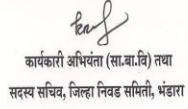 कार्यकारी अभियंता (सा.बा.वि) तथा
सदस्य सचिव, जिल्हा निवड समिती, भंडारा